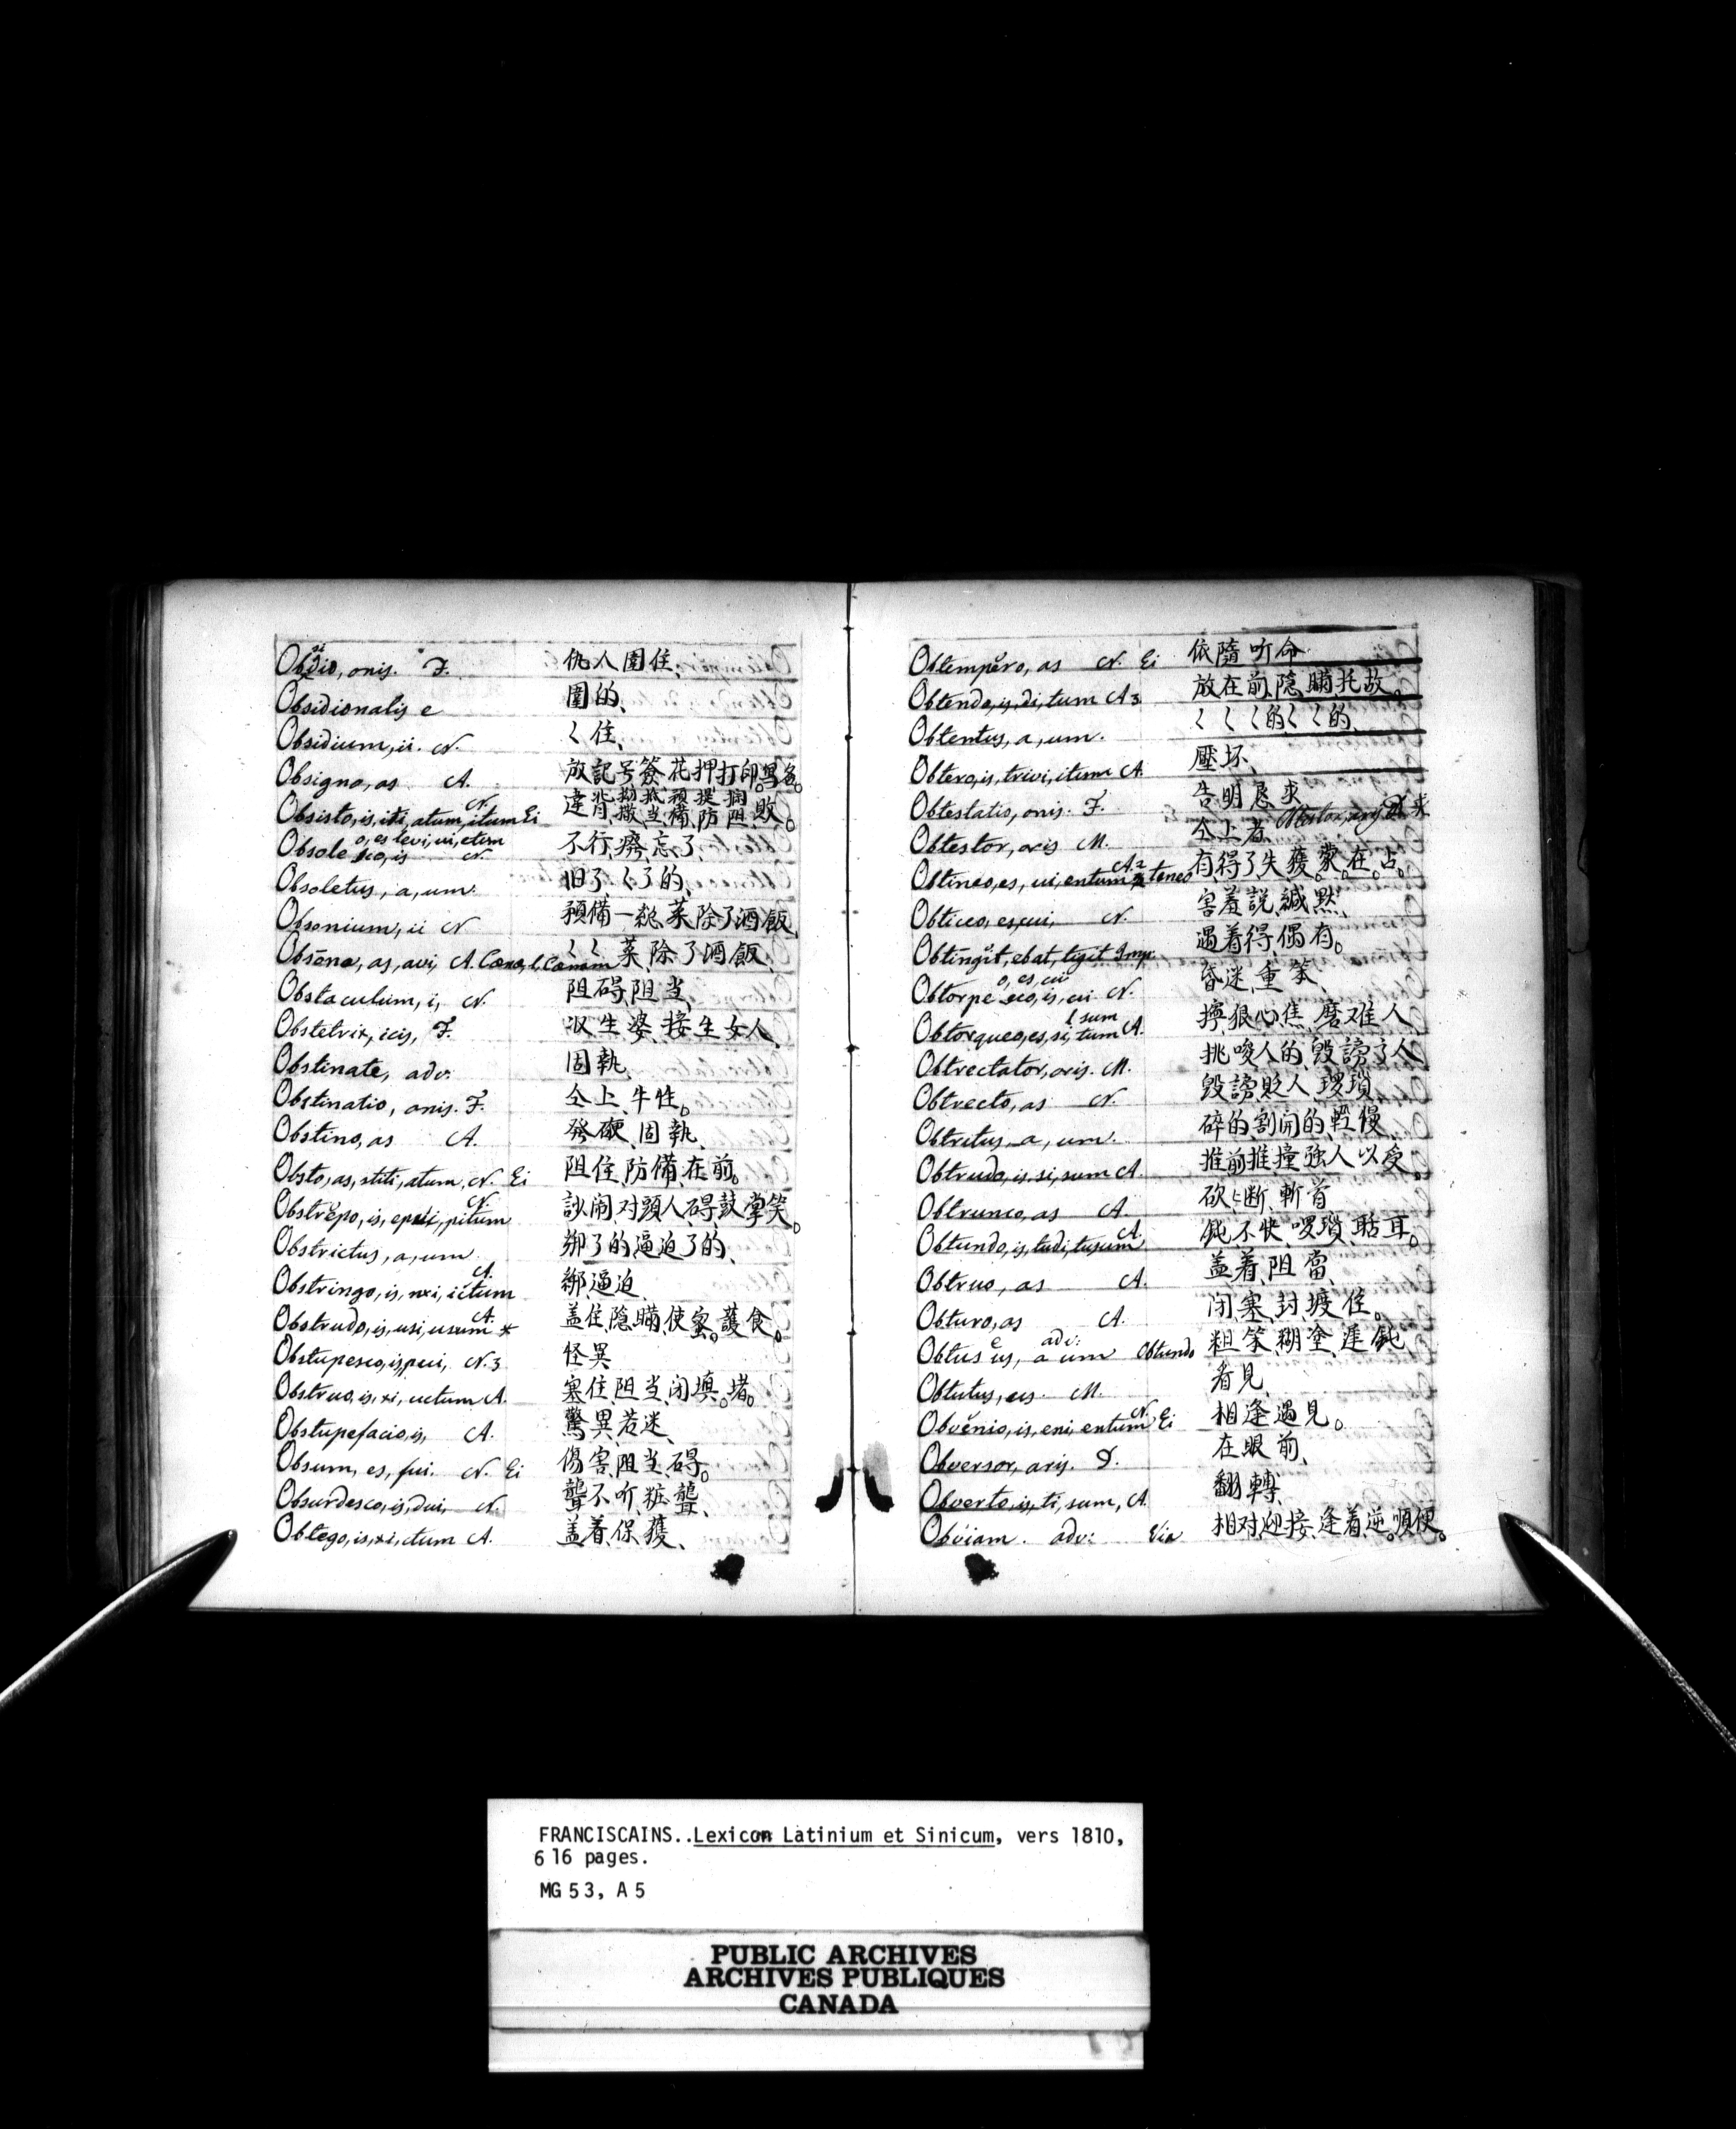 Obsidio, onis. F. 仇人圍住、
Obsidionalis e 圍的、
Obsidium, ii. N. く住、
Obsigno, as A. 放記号簽花押打印。寫名。
Obsisto, is, iti, atum, itum N. Ei 違背 防阻 敗。
Obsole o, es levi, ui, etum sco, is N. 不行、癈、忘了、
Obsoletus, a, um. 旧了、く了的、
Obsonium, ii N 預備一 菜除了酒飯、
Obsōno, as, avi, A. くく菜除了酒飯、
Obstaculum, i, N. 阻碍、阻当、
Obstetrix, icis, F. 收生婆、接生女人、
Obstinate, adv: 固執、
Obstinatio, onis. F. 仝上、牛性。
Obstino, as A. 發硬、固執、
Obsto, as, stiti, atum, N. Ei 阻住、防備、在前。
Obstrĕpo, is, epui, pitum N. 闹、对頭人、碍、鼓掌笑。
Obstrictus, a, um 綁了的、逼迫了的、
Obstringo, is, nxi, ictum A. 綁、逼迫
Obstrudo, is, usi, usum A. * 盖住、隐瞞、使蜜。護食。
Obstupesco, is, pui, N. 3 怪異
Obstruo, is, xi, uctum A. 塞住、阻当、闭、填。堵。
Obstupefacio, is, A. 驚異、若迷、
Obsum, es, fui. N. Ei 傷害、阻当、碍。
Obsurdesco, is, dui, N. 聾、不听、粧聾、
Obtego, is, xi, ctum A. 盖着、保護、
Obtempĕro, as N. Ei 依隨、听命、
Obtendo, is, di, tum A 3 放在前、隐瞞、托故。
Obtentus, a, um. くくく的、くく的、
Obtero, is, trivi, itum A. 壓坏、
Obtestatio, onis. F. 告明、恳求
Obtestor, oris M. 仝上者
Obtineo, es, ui, entum A 2 teneo 有、得了失、獲。蒙。在。占。
Obticeo, es, cui, N. 害羞説、緘默、
Obtingit, ebat, tigit Imp. 遇着、得、偶有。
Obtorpe o, es, ui sco, is, ui N. 昏迷、重笨、
Obtorqueo, es, si, tum l sum A. 擰、狠心、焦、磨难人
Obtrectator, oris. M. 挑唆人的、毀謗 人
Obtrecto, as N. 毀謗、貶人、瑣
Obtritus, a, um. 碎的、割開的、輕慢
Obtrudo, is, si, sum A. 推前、推撞、強人以受。
Obtrunco, as A. 砍 断、斬首
Obtundo, is, tudi, tusum A. 鈍、不快、啰瑣、聒耳。
Obtruo, as A. 盖着、阻當、
Obturo, as A. 闭塞、封、 住。
Obtus e adv: us, a um Obtundo 粗笨、糊塗、遲鈍
Obtutus, us. M. 看見
Obvenio, is, eni, entum N. Ei 相逢、遇見。
Obversor, aris. D. 在眼前、
Obverto, is, ti, sum, A. 翻轉、
Obviam. adv: Via 相对、迎接、逢着、逆。順便。
FRANCISCAINS..Lexicon Latinium et Sinicum, vers 1810,
616 pages.
MG 53, A 5
PUBLIC ARCHIVES
ARCHIVES PUBLIQUES
CANADA